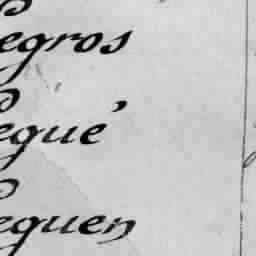 egros
egué
eguen